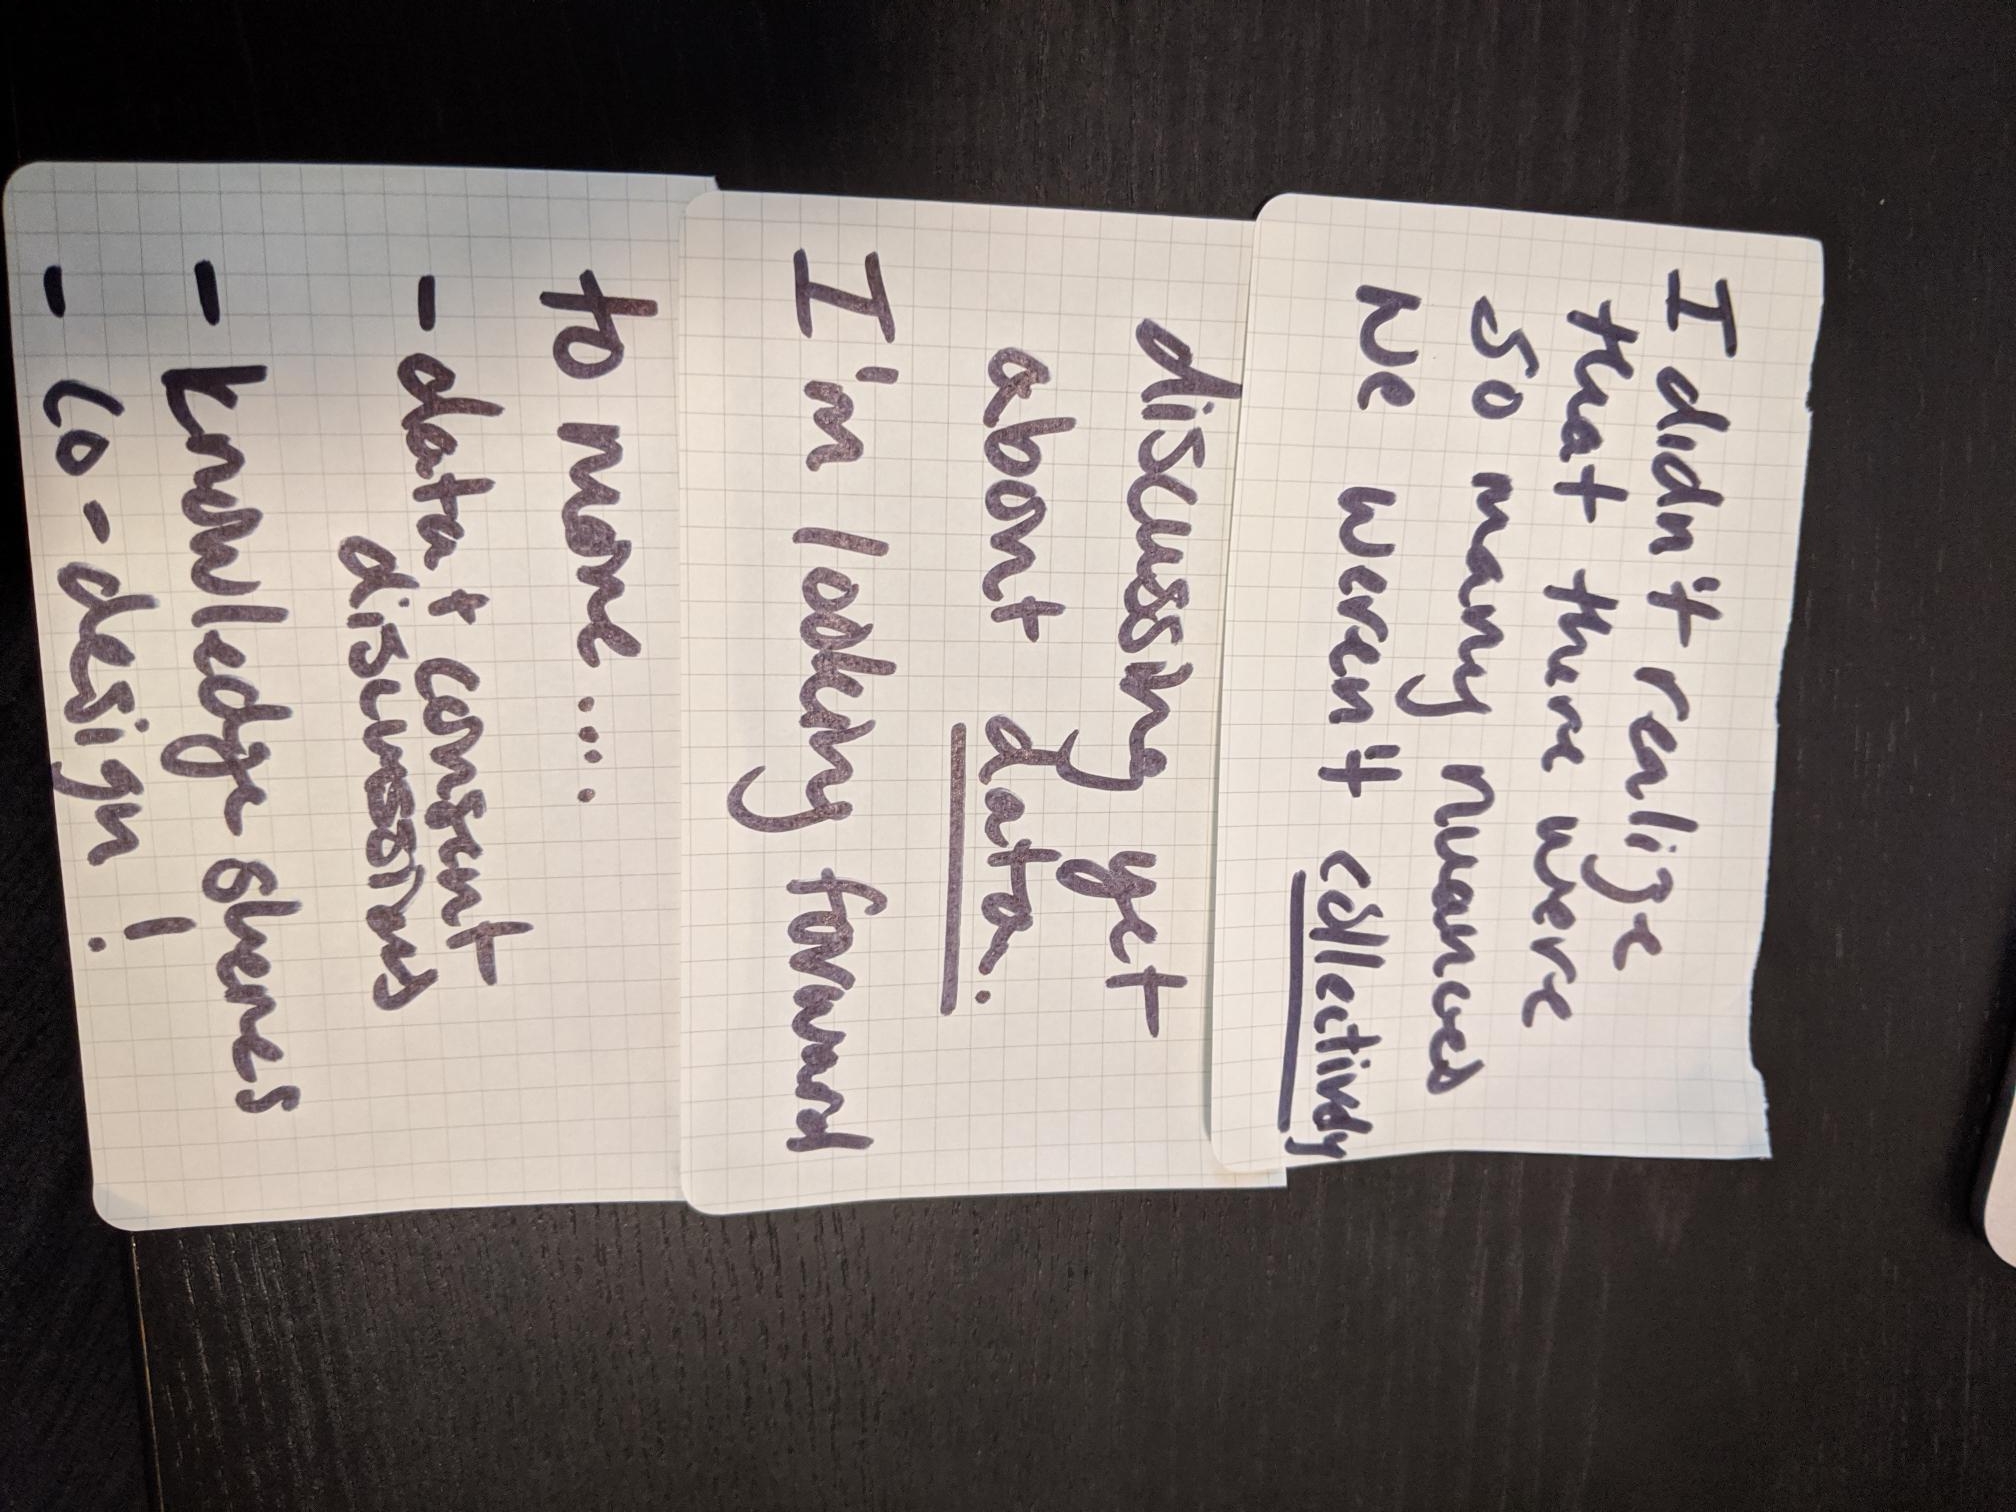 I didn't realize
that there were
so many nuances
we weren't collectively
discussing yet
about data.
I'm looking forward
to more ....
- data + consent
discussions
- knowledge shares
- co-design!